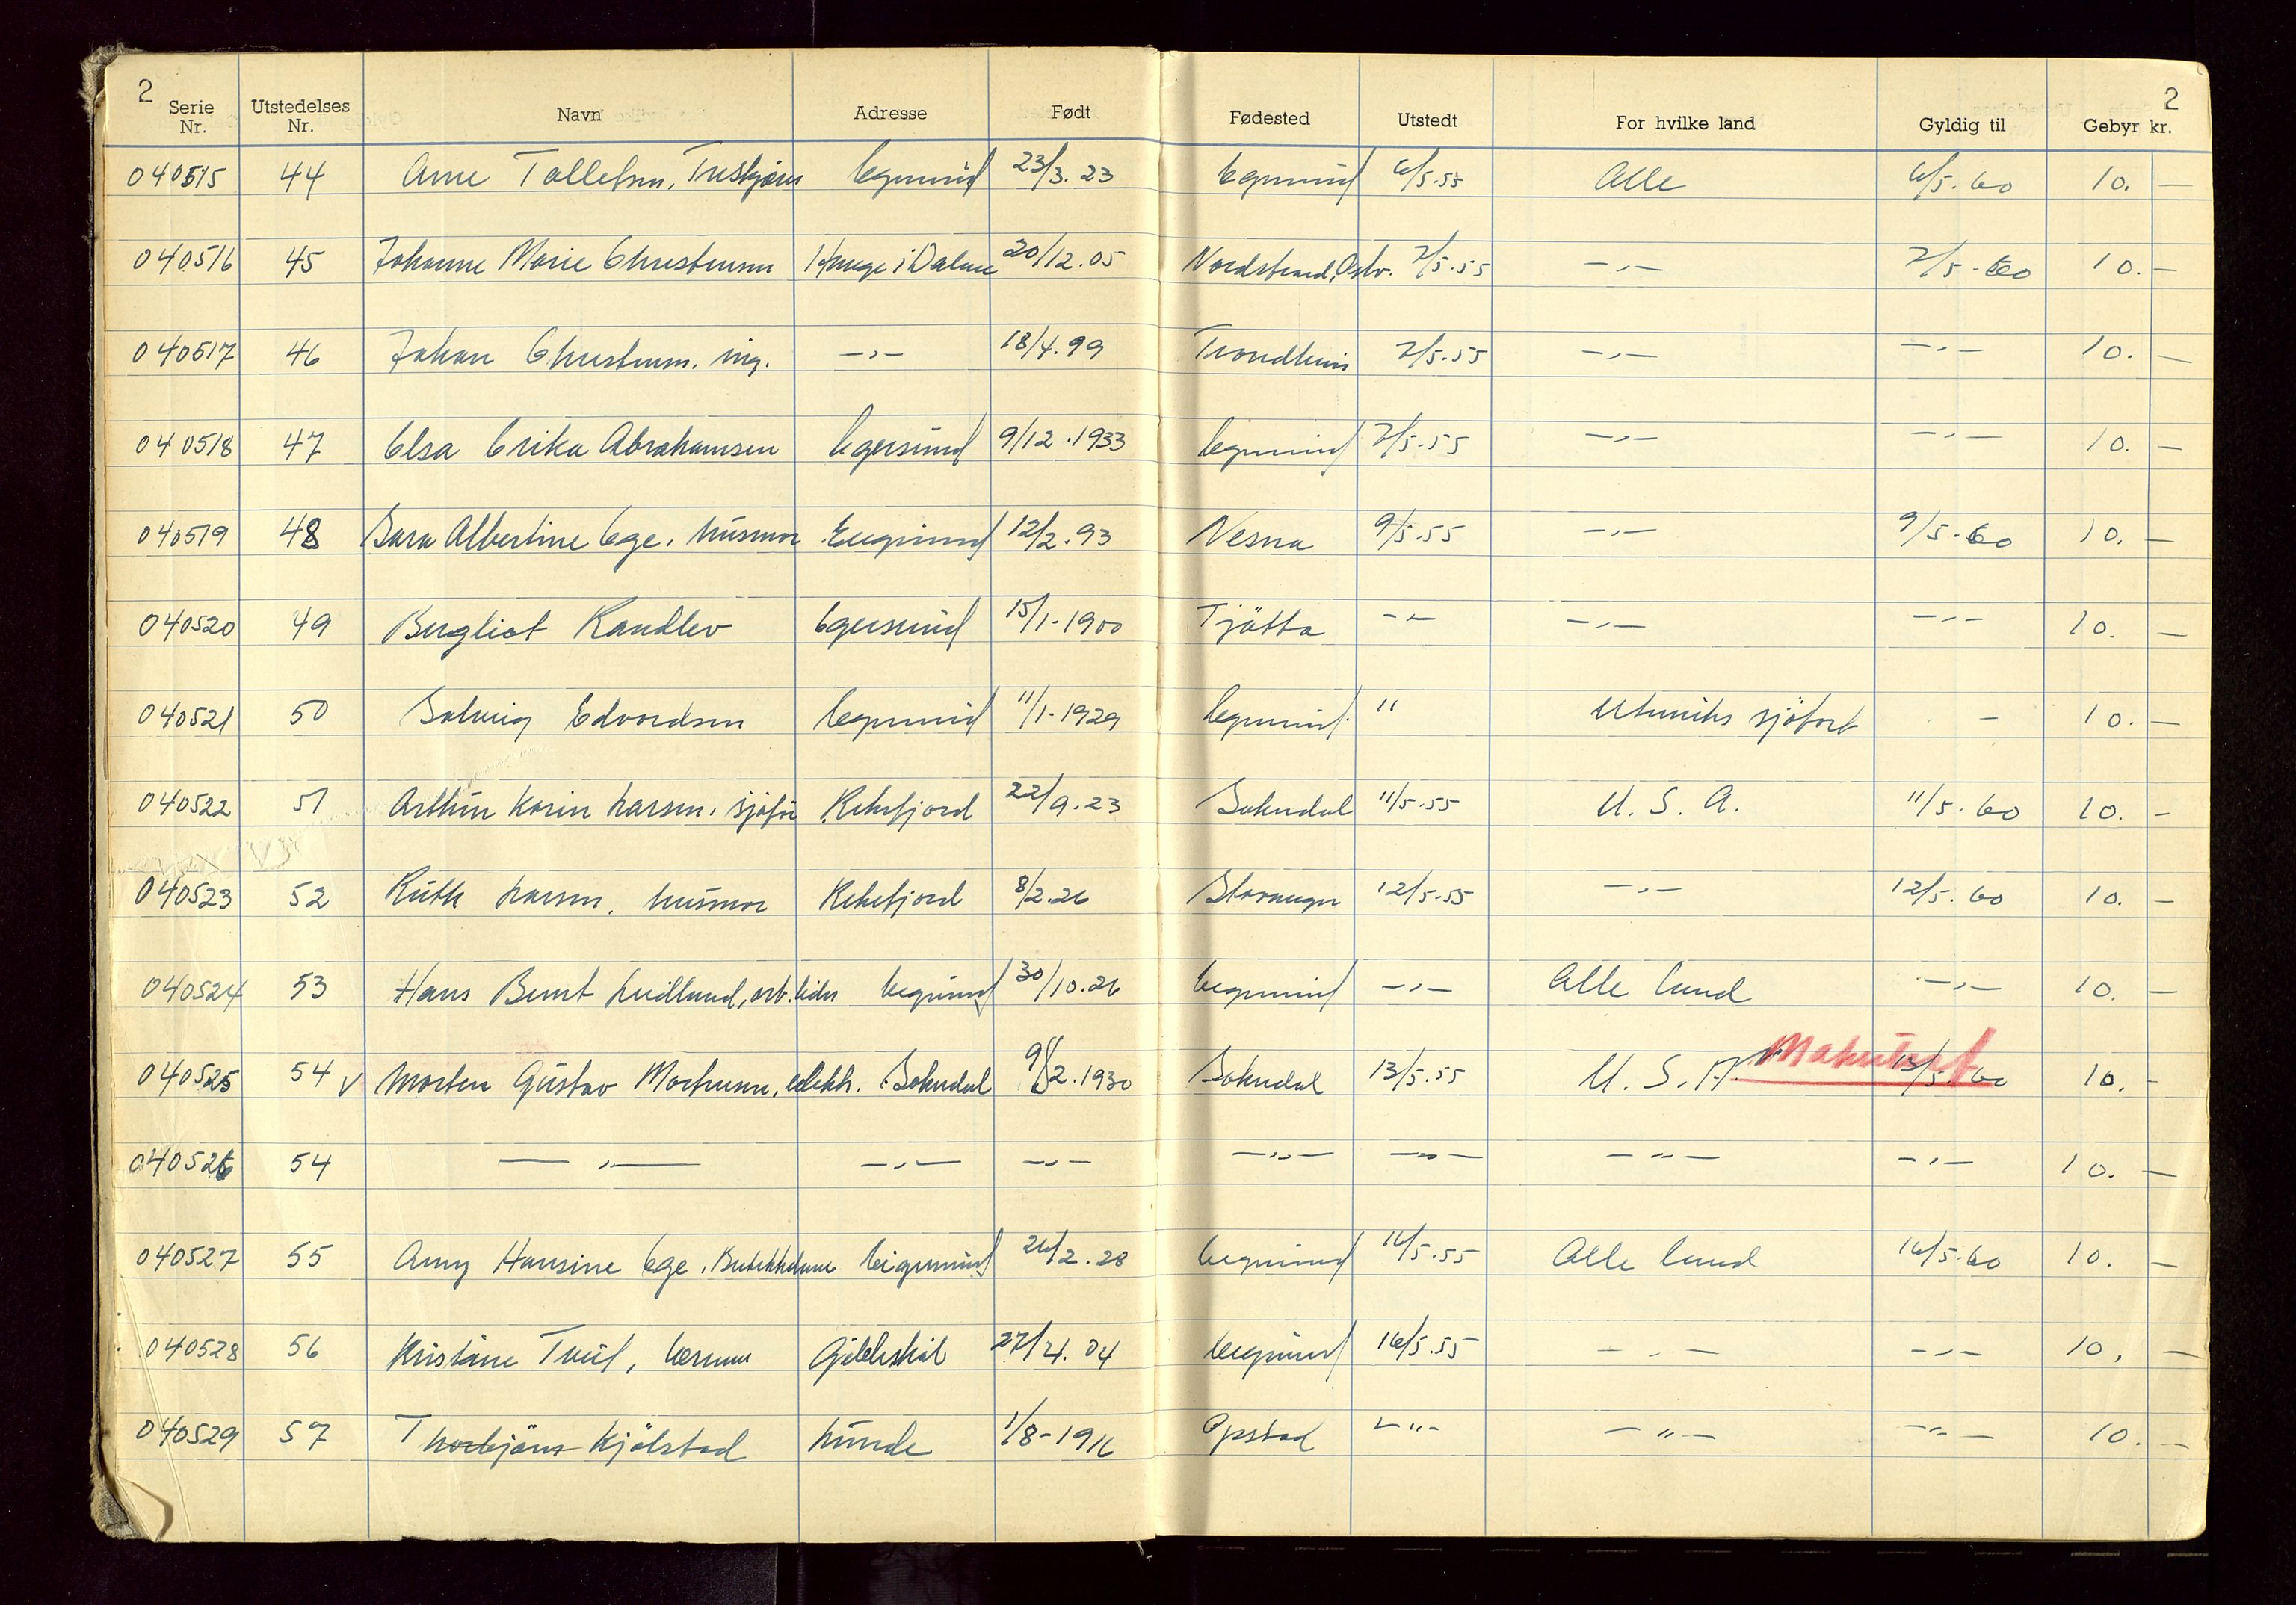 2 2
Serie Nr. Utstedelses Nr. Navn Adresse Født Fødested Utstedt For hvilke land Gyldig til Gebyr kr.
040515 44 Arne Tollefsen, Egersund 23/3.23 Egersund 6/5.55 Alle 6/5.60 10. —
040516 45 Johanne Marie Christensen Hauge i Dalane 20/12.05 Nordstrand, Oslo. 7/5.55 —,— 7/5-60 10. —
040517 46 Johan Christensen. ing. —,— 18/4.99 Trondheim 7/5.55 —,— —,— 10. —
040518 47 Elsa Erika Abrahamsen Egersund 9/12.1933 Egersund 7/5.55 —,— —,— 10. —
040519 48 Sara Albertine Ege. husmor Eigersund 12/2.93 Nesna 9/5.55 —,— 9/5.60 10. —
040520 49 Bergliot Egersund 15/1-1900 Tjötta —,— —,— —,— 10. —
040521 50 Solveig Edvardsen Egersund 11/1-1929 Egersund. " Utenriks sjöfart – 10. —
040522 51 Arthur Karin Larsen. Rekefjord 22/9.23 Sokndal 11/5.55 U. S. A. 11/5.60 10. —
040523 52 Ruth Larsen. husmor Rekefjord 8/2.26 Stavanger 12/5.55 —,— 12/5.60 10. —
040524 53 Hans Berent arb.leder Eigersund 30/10.26 Eigersund —,— Alle land —,— 10. —
040525 54 v Morten Gustav Mortensen, elektr. Sokndal 9/2.1930 Sokndal 13/5.55 U. S. A Makulert 13/5.60 10. —
040526 54 —,— —,— —,— —,,— —,,— —,,— —,— 10. —
040527 55 Anny Hansine Ege. Eigersund 26/2.28 Eigersund 16/5.55 Alle land 16/5.60 10. —
040528 56 Kristine 27/4.04 Eigersund 16/5.55 —,— —,— 10. —
040529 57 Thorbjörn Kjölstad Lunde 1/8-1916 Opstad —"— —"— —"— 10. —